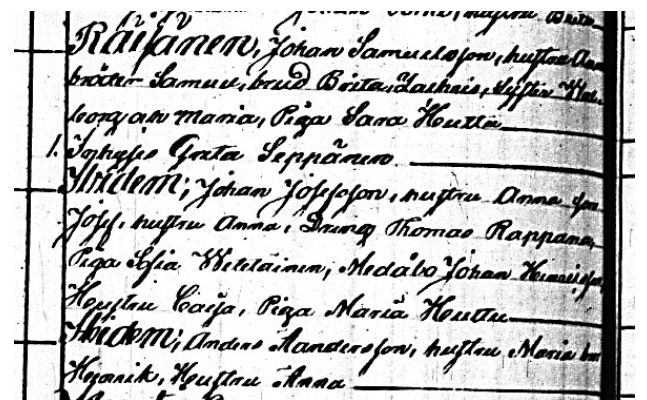 Johan hustru Brita
Räisänen, Johan Samuelsson, hustru Ann
bröder Samuel, brud Brita, Zachris, Syster Wal-
borg och Maria, Piga Sara Heutta
1. Inhyses Greta Seppänen
Ibidem; Johan Josefsson, hustru Anna son
Josef, hustru Anna, Dreng Thomas Rappana,
Piga Sofia Weteläinen, Medåbo Johan
Hustru Caisa, Piga Maria Heuttu
Ibidem; Anders Andersson, hustru Maria
Henrik, Hustru Anna